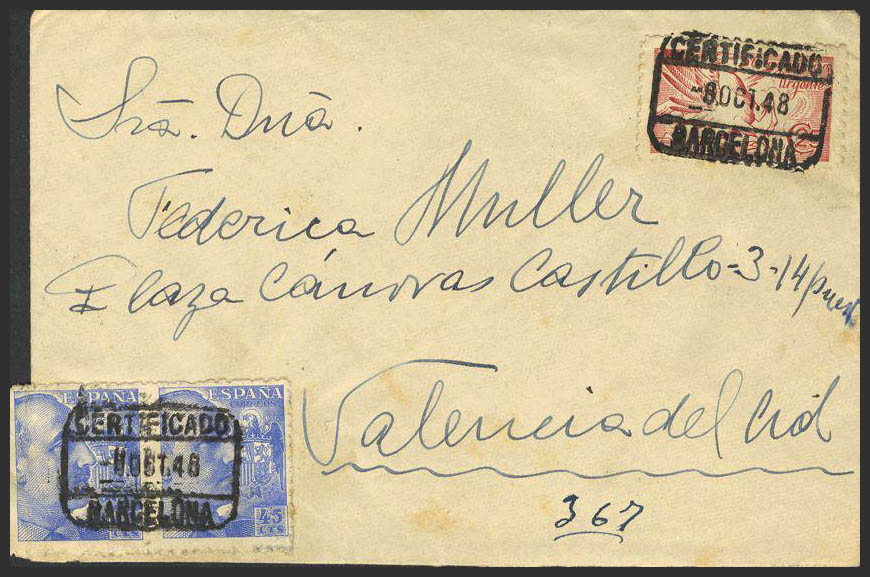 CERTIFICADO
urgente
8.OCT.48
BARCELONA
Srã. Dnã.
Federica Muller
Plaza Cánovas Castillo-3-14 puert
Valencia del Cid
367
ESPAÑA
ESPAÑA
CORREOS
CERTIFICADO
OCT.48
BARCELONA
CTS
45
CTS